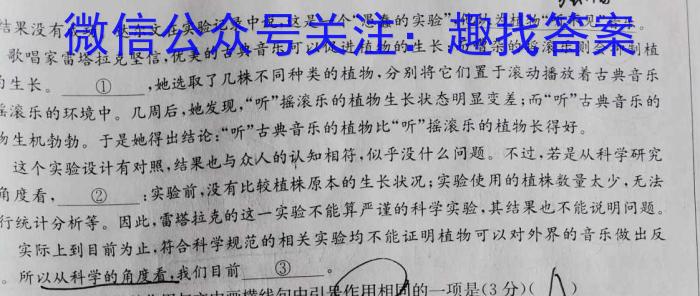 微信公众号关注：趣找答案
结果没有
文在实验记录中说，这
个“愚蠢的实验”
歌唱家雷塔拉克坚信，优美的古典音乐可以促进植物的生长，
制植
的生长。①，她选取了几株不同种类的植物，分别将它们置于滚动播放着古典音乐
摇滚乐的环境中。几周后，她发现，“听”摇滚乐的植物生长状态明显变差；而“听”古典音乐的
物生机勃勃。于是她得出结论：“听”古典音乐的植物比“听”摇滚乐的植物长得好。
这个实验设计有对照，结果也与众人的认知相符，似乎没什么问题。不过，若是从科学研究
角度看，②：实验前，没有比较植株原本的生长状况；实验使用的植株数量太少，无法
行统计分析等。因此，雷塔拉克的这一实验不能算严谨的科学实验，其结果也不能说明问题。
实际上到目前为止，符合科学规范的相关实验均不能证明植物可以对外界的音乐做出反
。所以从科学的角度看，我们目前③。
画横线句中引号作用相同的一项是（3分）（A）